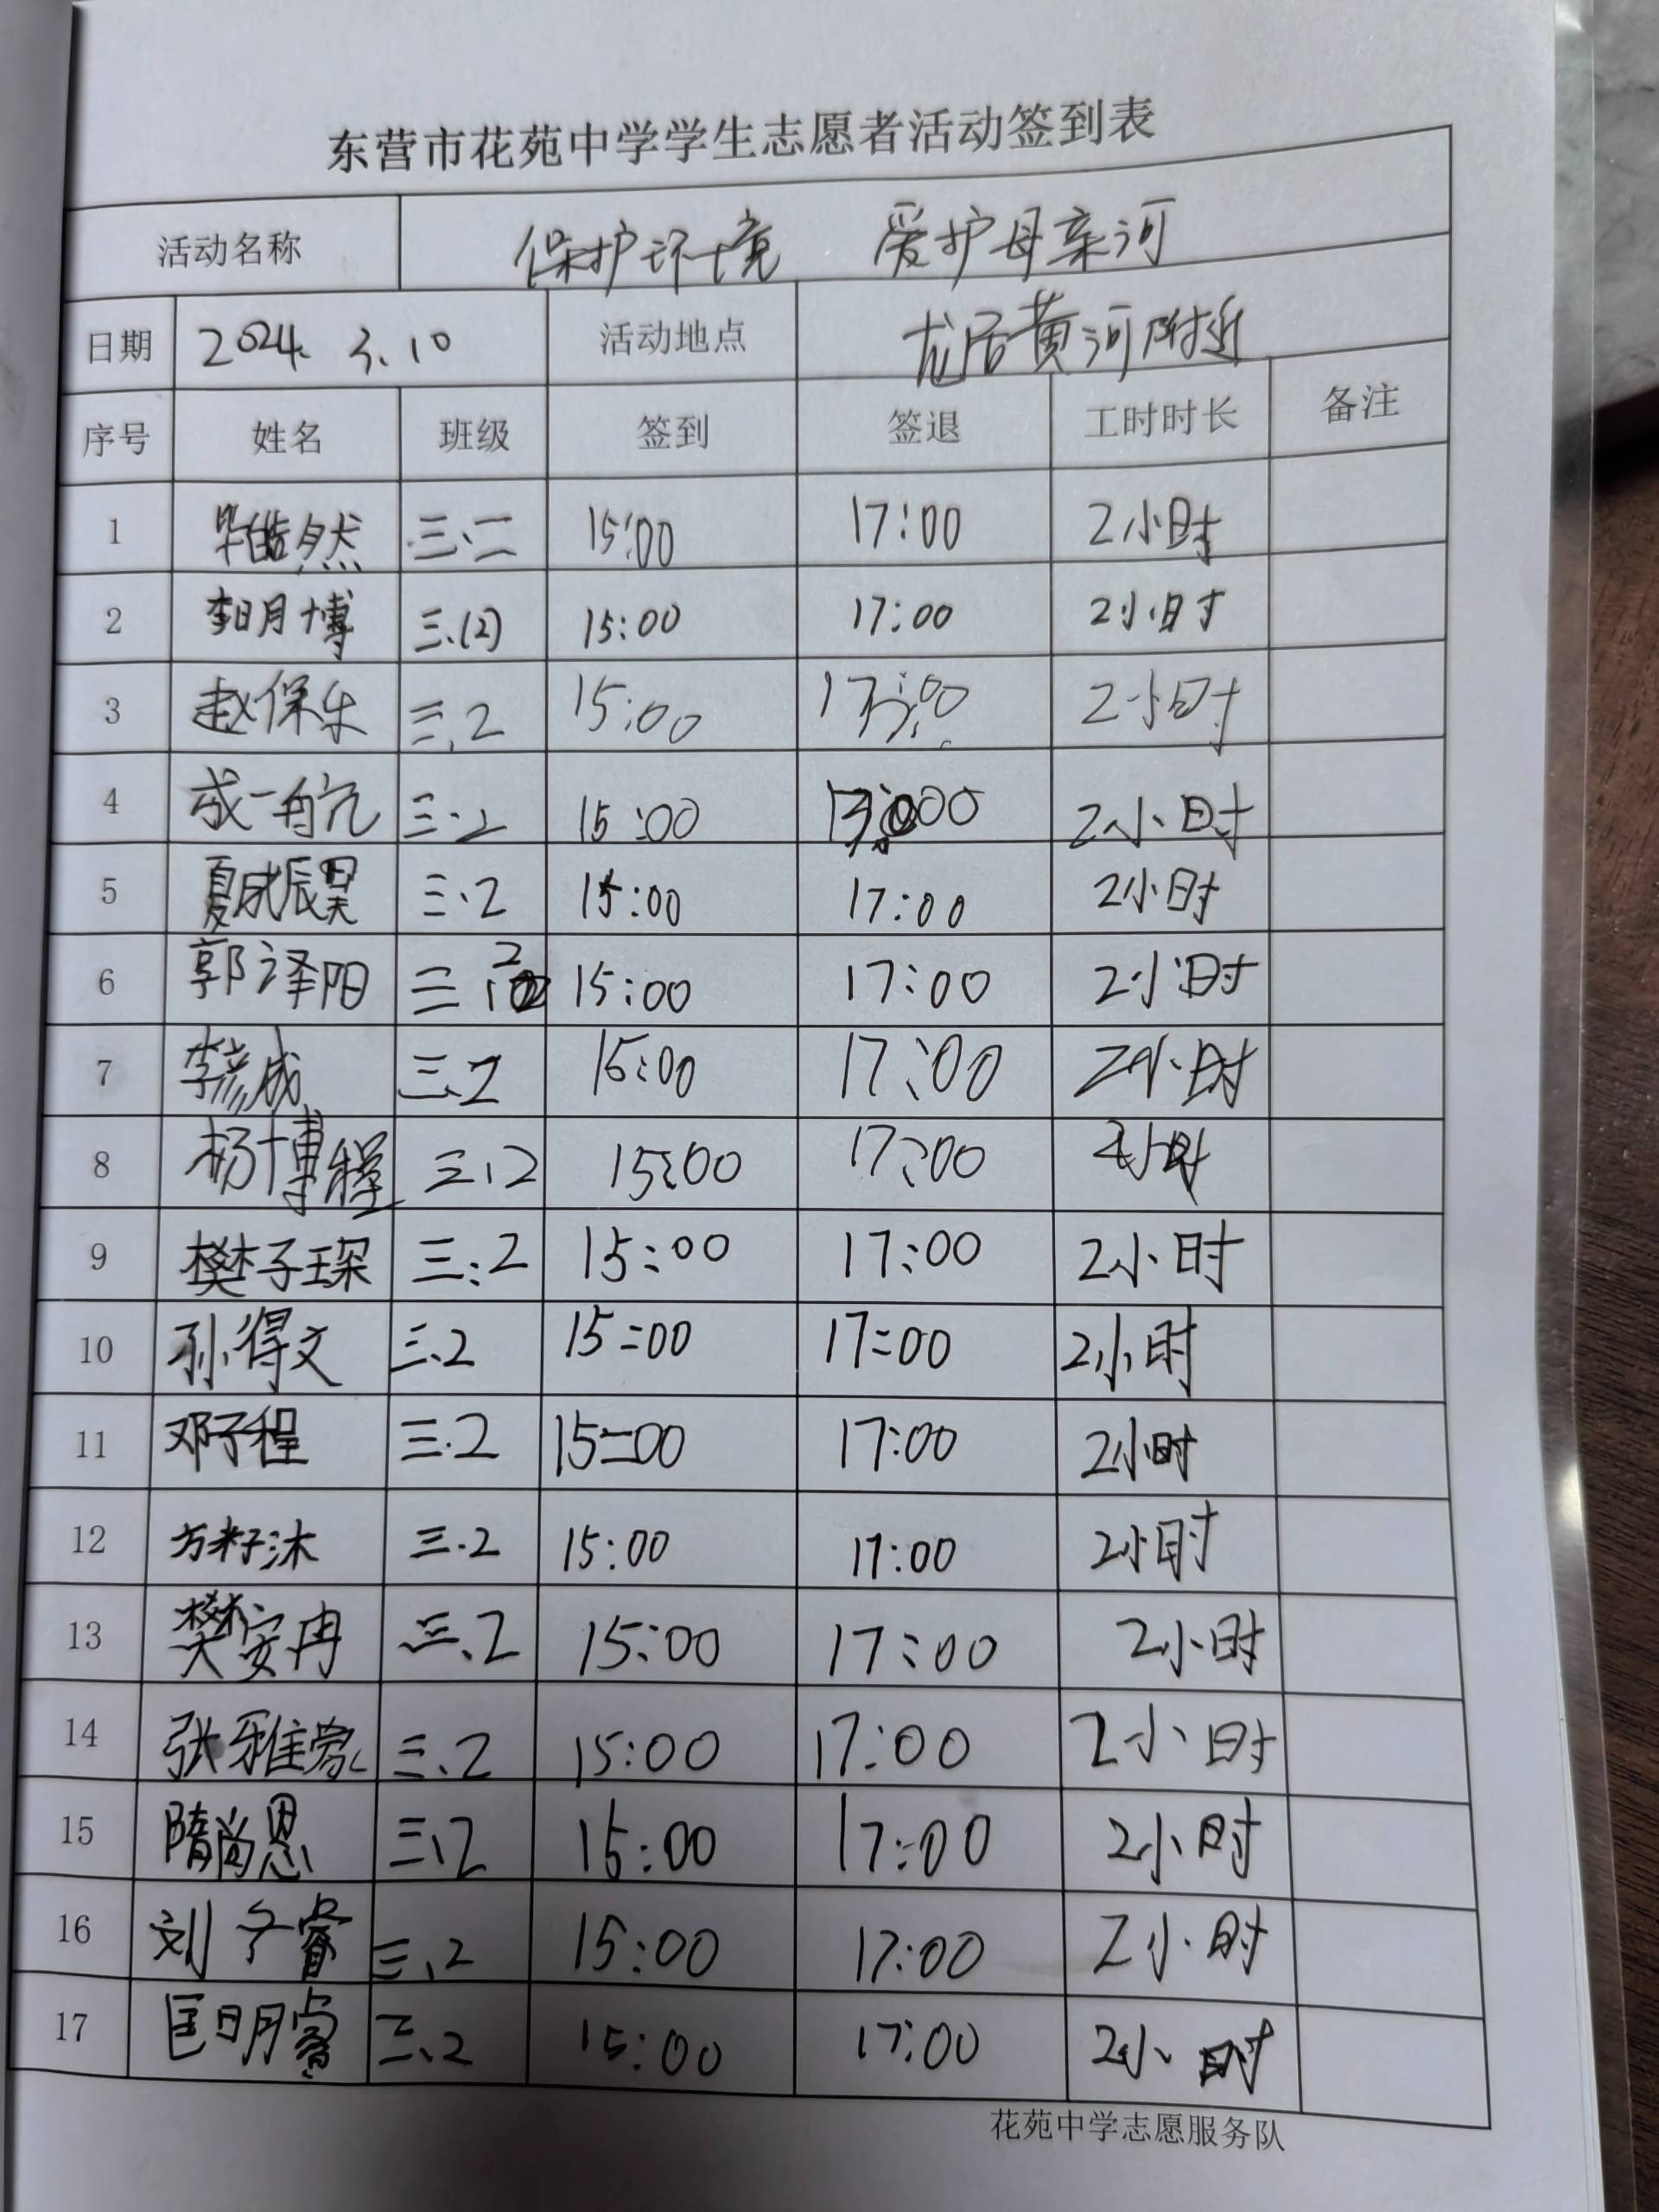 东营市花苑中学学生志愿者活动签到表
活动名称 保护环境 爱护母亲河
日期 2024. 3.10 活动地点 龙居黄河附近
序号 姓名 班级 签到 签退 工时时长 备注
1 毕皓然 三.二 15:00 17:00 2小时
2 李明博 三.(2) 15:00 17:00 2小时
3 赵保乐 三.2 15:00 2小时
4 成一航 三.2 15:00 2小时
5 夏成辰昊 三.2 15:00 17:00 2小时
6 郭泽阳 三 2 15:00 17:00 2小时
7 李彦成 三.2 15:00 17:00 2小时
8 杨博程 三.2 15:00 17:00 2小时
9 樊子琛 三:2 15:00 17:00 2小时
10 孙得文 三.2 15:00 17:00 2小时
11 邓子程 三.2 15:00 17:00 2小时
12 方籽沐 三.2 15:00 17:00 2小时
13 樊安冉 三.2 15:00 17:00 2小时
14 张雅 三.2 15:00 17:00 2小时
15 隋尚恩 三.2 15:00 17:00 2小时
16 刘子睿 三.2 15:00 17:00 2小时
17 匡明睿 三.2 15:00 17:00 2小时
花苑中学志愿服务队